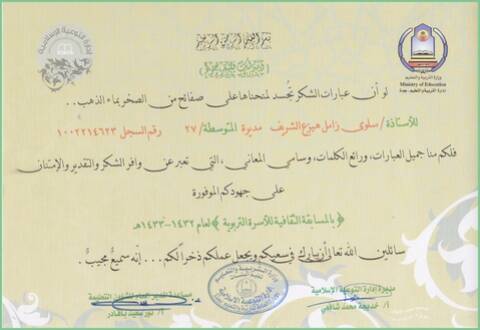 بسم الله الرحمن الرحيم
إدارة التوعية الإسلامية
وزارة التربية والتعليم
Ministry of Education
لو أن عبارات الشكر تجسد لمنحناها على صفائح من الصخر بماء الذهب..
للأستاذة/ سلوى زامل هيزع الشريف مديرة المتوسطة/ ٢٧ رقم السجل ١٠٠٢٢١٤٦٢٣
فلكم منا جميل العبارات، ورائع الكلمات، وسامي المعاني، التي تعبر عن وافر الشكر والتقدير والإمتنان
على جهودكم الموفورة
﴿بالمسابقة الثقافية للأسرة التربوية﴾ لعام ١٤٣٢-١٤٣٣هـ
سائلين الله تعالى أن يبارك في سعيكم ويجعل عملكم ذخراً لكم... إنه سميع مجيب.
مديرة إدارة التوعية الإسلامية
أ/ خديجة محمد شافعي
أ/ نور سعيد باقادر